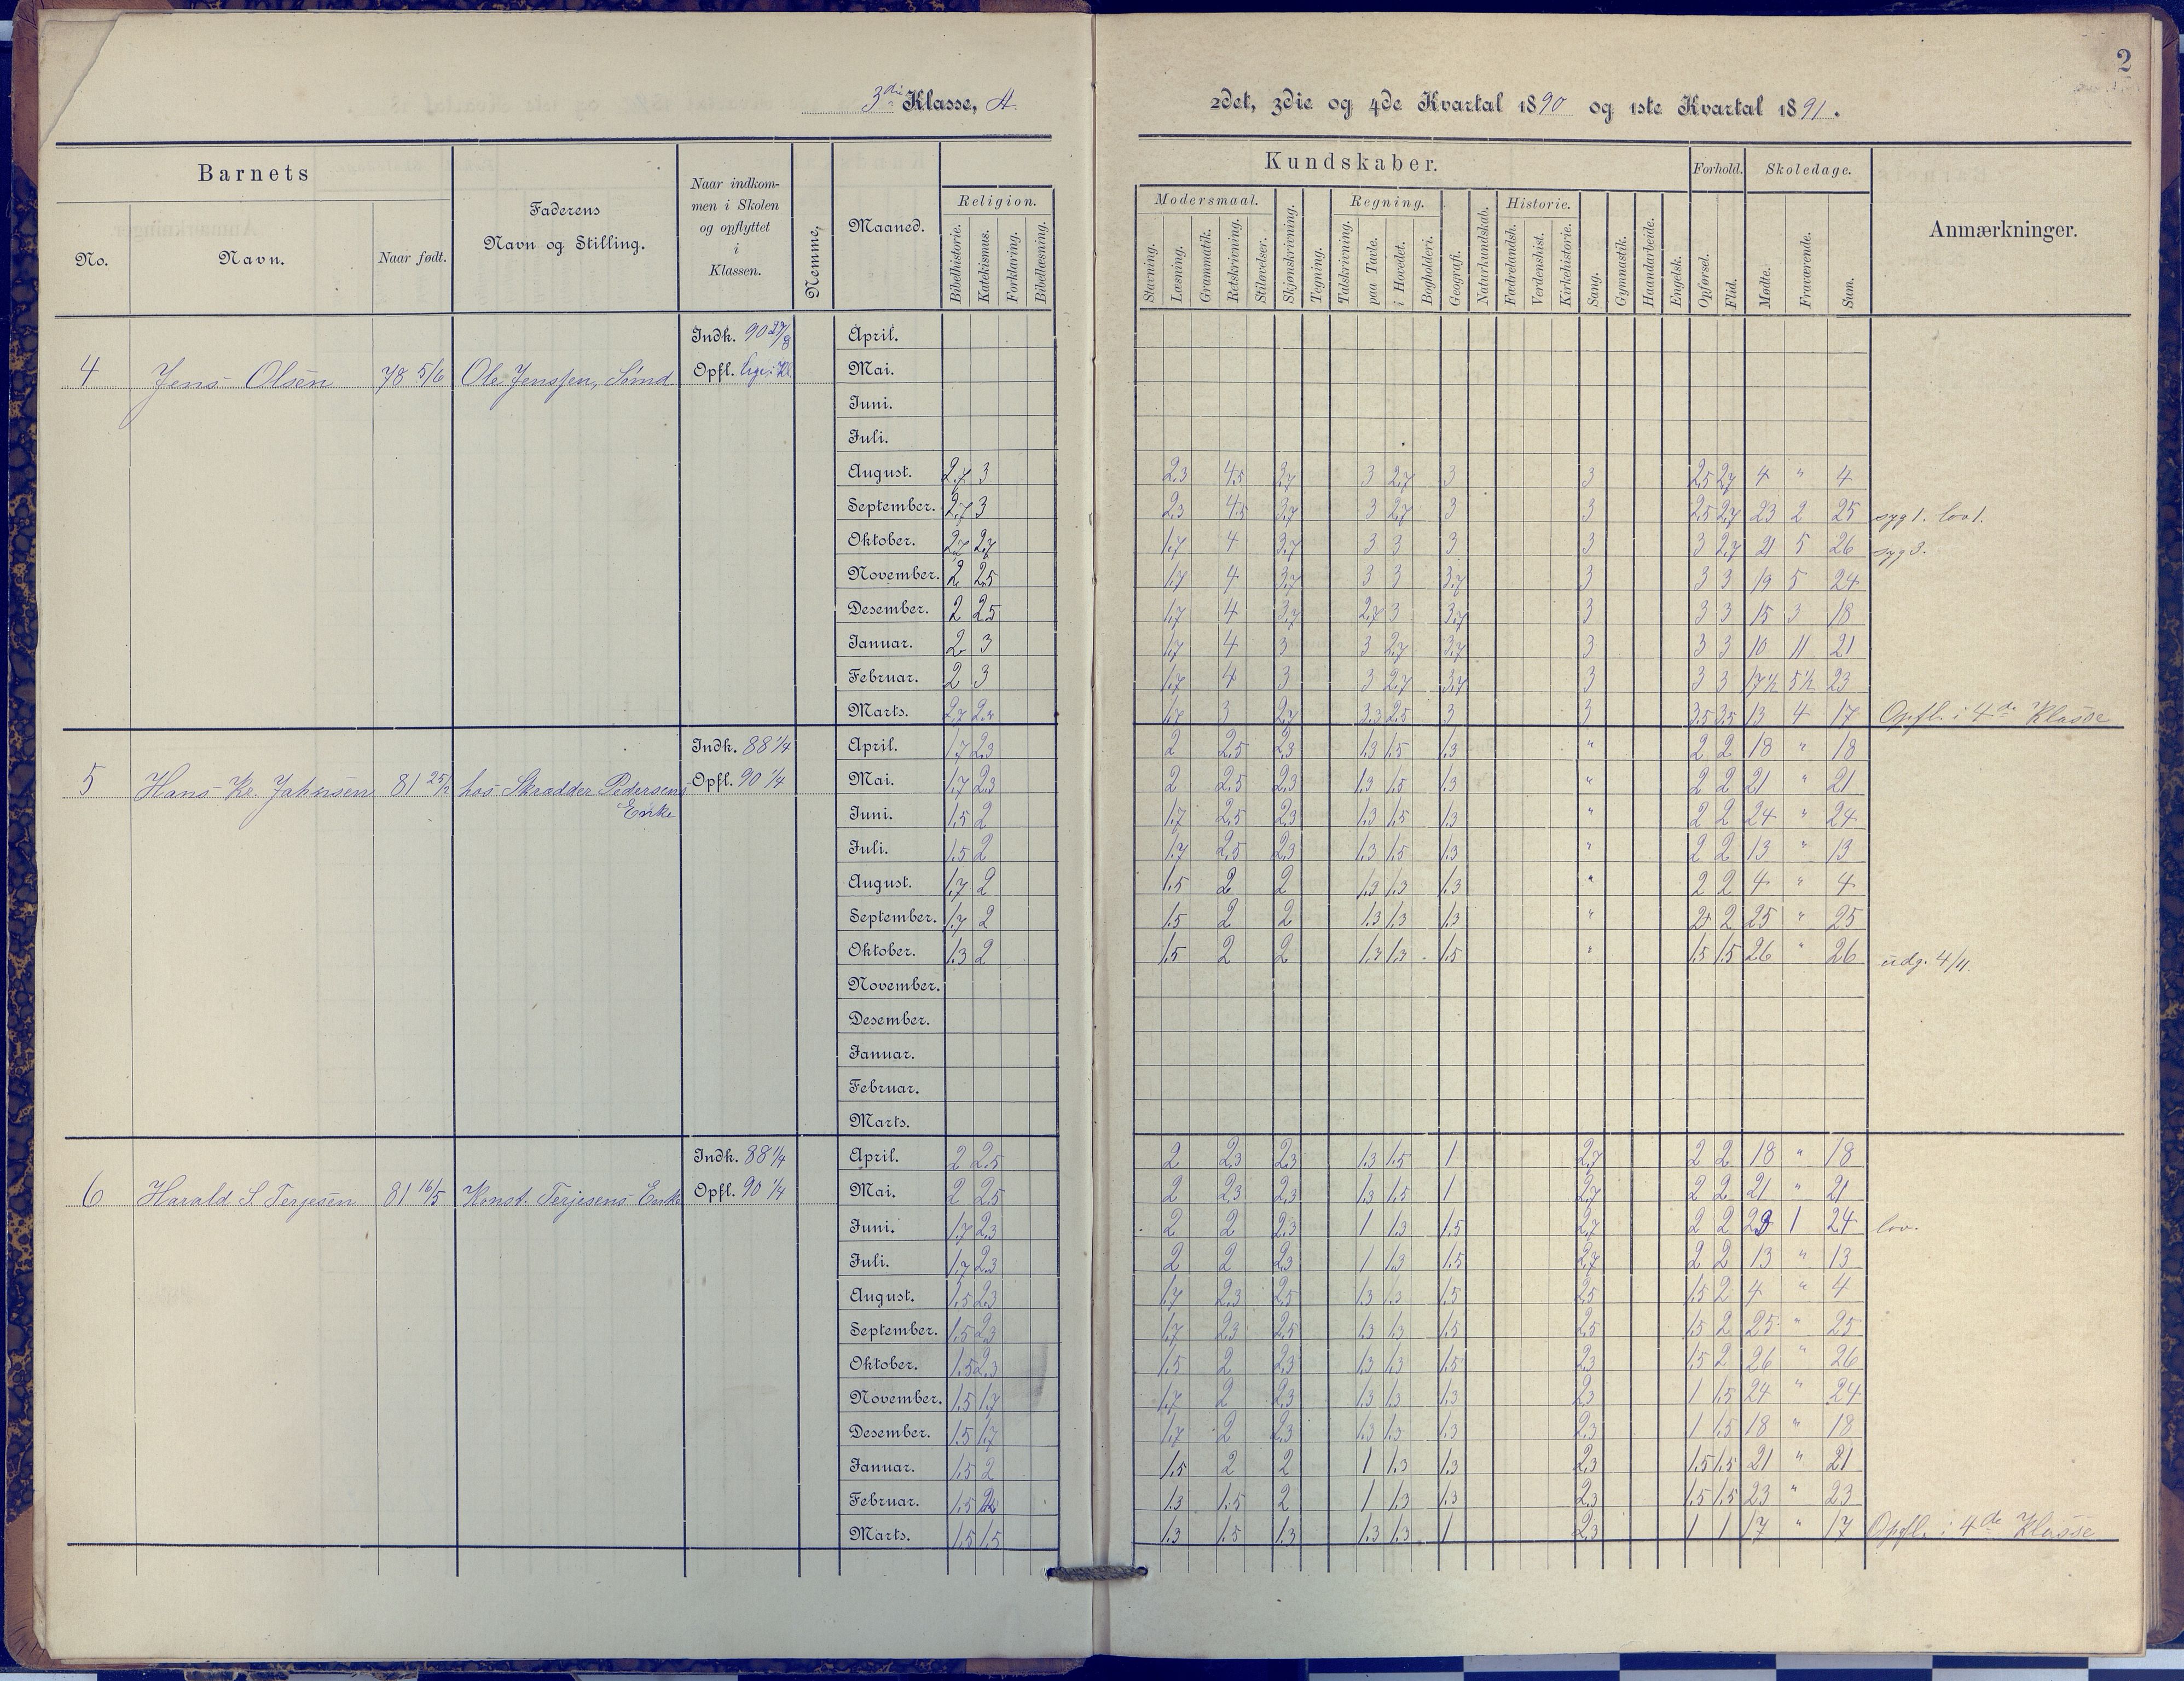 2
3die Klasse, A.
2det, 3die og 4de Kvartal 1890 og 1ste Kvartal 1891.
Barnets
Faderens
Navn og Stilling.
Naar indkom-
men i Skolen
og opflyttet
i
Klassen.
Nemme,
Maaned.
No.
Navn.
Naar født.
Kundskaber.
Forhold.
Skoledage.
Anmærkninger.
Religion.
Modersmaal.
Regning.
Historie.
Bibelhistorie.
Katekismus.
Forklaring.
Bibellæsning.
Stavning.
Læsning.
Grammatik.
Retskrivning.
Stiløvelser.
Skjønskrivning.
Tegning.
Talskrivning.
paa Tavle.
i Hovedet.
Bogholderi.
Geografi.
Naturkundskab.
Fædrelandsh.
Verdenshist.
Kirkehistorie.
Sang.
Gymnastik.
Haandarbeide.
Engelsk.
Opførsel.
Flid.
Mødte.
Fraværende.
Sum.
4 Jens Olsen 78 5/6 Ole Jenssen, Sømd.
Indk. 90 27/8
Opfl.
April.
Mai.
Juni.
Juli.
August. 2,7 3 2,3 4,5 3,7 3 2,7 3 3 2,5 2,7 4 " 4
September. 2,7 3 2,3 4,5 3,7 3 2,7 3 3 2,5 2,7 23 2 25 syg 1. lov 1.
Oktober. 2,7 2,7 1,7 4 3,7 3 3 3 3 3 2,7 21 5 26 syg 3.
November. 2 2,5 1,7 4 3,7 3 3 3,7 3 3 3 19 5 24
Desember. 2 2,5 1,7 4 3,7 2,7 3 3,7 3 3 3 15 3 18
Januar. 2 3 1,7 4 3 3 2,7 3,7 3 3 3 10 11 21
Februar. 2 3 1,7 4 3 3 2,7 3,7 3 3 3 17½ 5½ 23
Marts. 2,7 1,7 3 2,7 3,3 2,5 3 3 3,5 3,5 13 4 17 Opfl. i 4de Klasse
5 Hans Kr. Jahnsen 81 hos Skrædder Pedersens
Enke
Indk. 88 1/4
Opfl. 90 1/4
April. 1,7 2,3 2 2,5 2,3 1,3 1,5 1,3 " 2 2 18 " 18
Mai. 1,7 2,3 2 2,5 2,3 1,3 1,5 1,3 " 2 2 21 " 21
Juni. 1,5 2 1,7 2,5 2,3 1,3 1,5 1,3 " 2 2 24 " 24
Juli. 1,5 2 1,7 2,5 2,3 1,3 1,5 1,3 " 2 2 13 " 13
August. 1,7 2 1,5 2 2 1,3 1,3 1,3 " 2 2 4 " 4
September. 1,7 2 1,5 2 2 1,3 1,3 1,3 " 2 2 25 " 25
Oktober. 1,3 2 1,5 2 2 1,3 1,3 1,5 " 1,5 1,5 26 " 26 udg. 4/11.
November.
Desember.
Januar.
Februar.
Marts.
6 Harald S Terjesen 81 16/5 Konst. Terjesens Enke
Indk. 88 1/4
Opfl. 90 1/4
April. 2 2,5 2 2,3 2,3 1,3 1,5 1 2,7 2 2 18 " 18
Mai. 2 2,5 2 2,3 2,3 1,3 1,5 1 2,7 2 2 21 " 21
Juni. 1,7 2,3 2 2 2,3 1 1,3 1,5 2,7 2 2 23 1 24 lov.
Juli. 1,7 2,3 2 2 2,3 1 1,3 1,5 2,7 2 2 13 " 13
August. 1,5 2,3 1,7 2,3 2,5 1,3 1,3 1,5 2,5 1,5 2 4 " 4
September. 1,5 2,3 1,7 2,3 2,5 1,3 1,3 1,5 2,5 1,5 2 25 " 25
Oktober. 1,5 2,3 1,5 2 2,3 1,3 1,3 1,5 2,3 1,5 2 26 " 26
November. 1,5 1,7 1,7 2 2,3 1,3 1,3 1,3 2,3 1 1,5 24 " 24
Desember. 1,5 1,7 1,7 2 2,3 1,3 1,3 1,3 2,3 1 1,5 18 " 18
Januar. 1,5 2 1,5 2 2 1 1,3 1,3 2,3 1,5 1,5 21 " 21
Februar. 1,5 2 1,3 1,5 2 1 1,3 1,3 2,3 1,5 1,5 23 " 23
Marts. 1,5 1,5 1,3 1,5 1,3 1,3 1,3 1 2,3 1 1 17 " 17 Opfl. i 4de Klasse